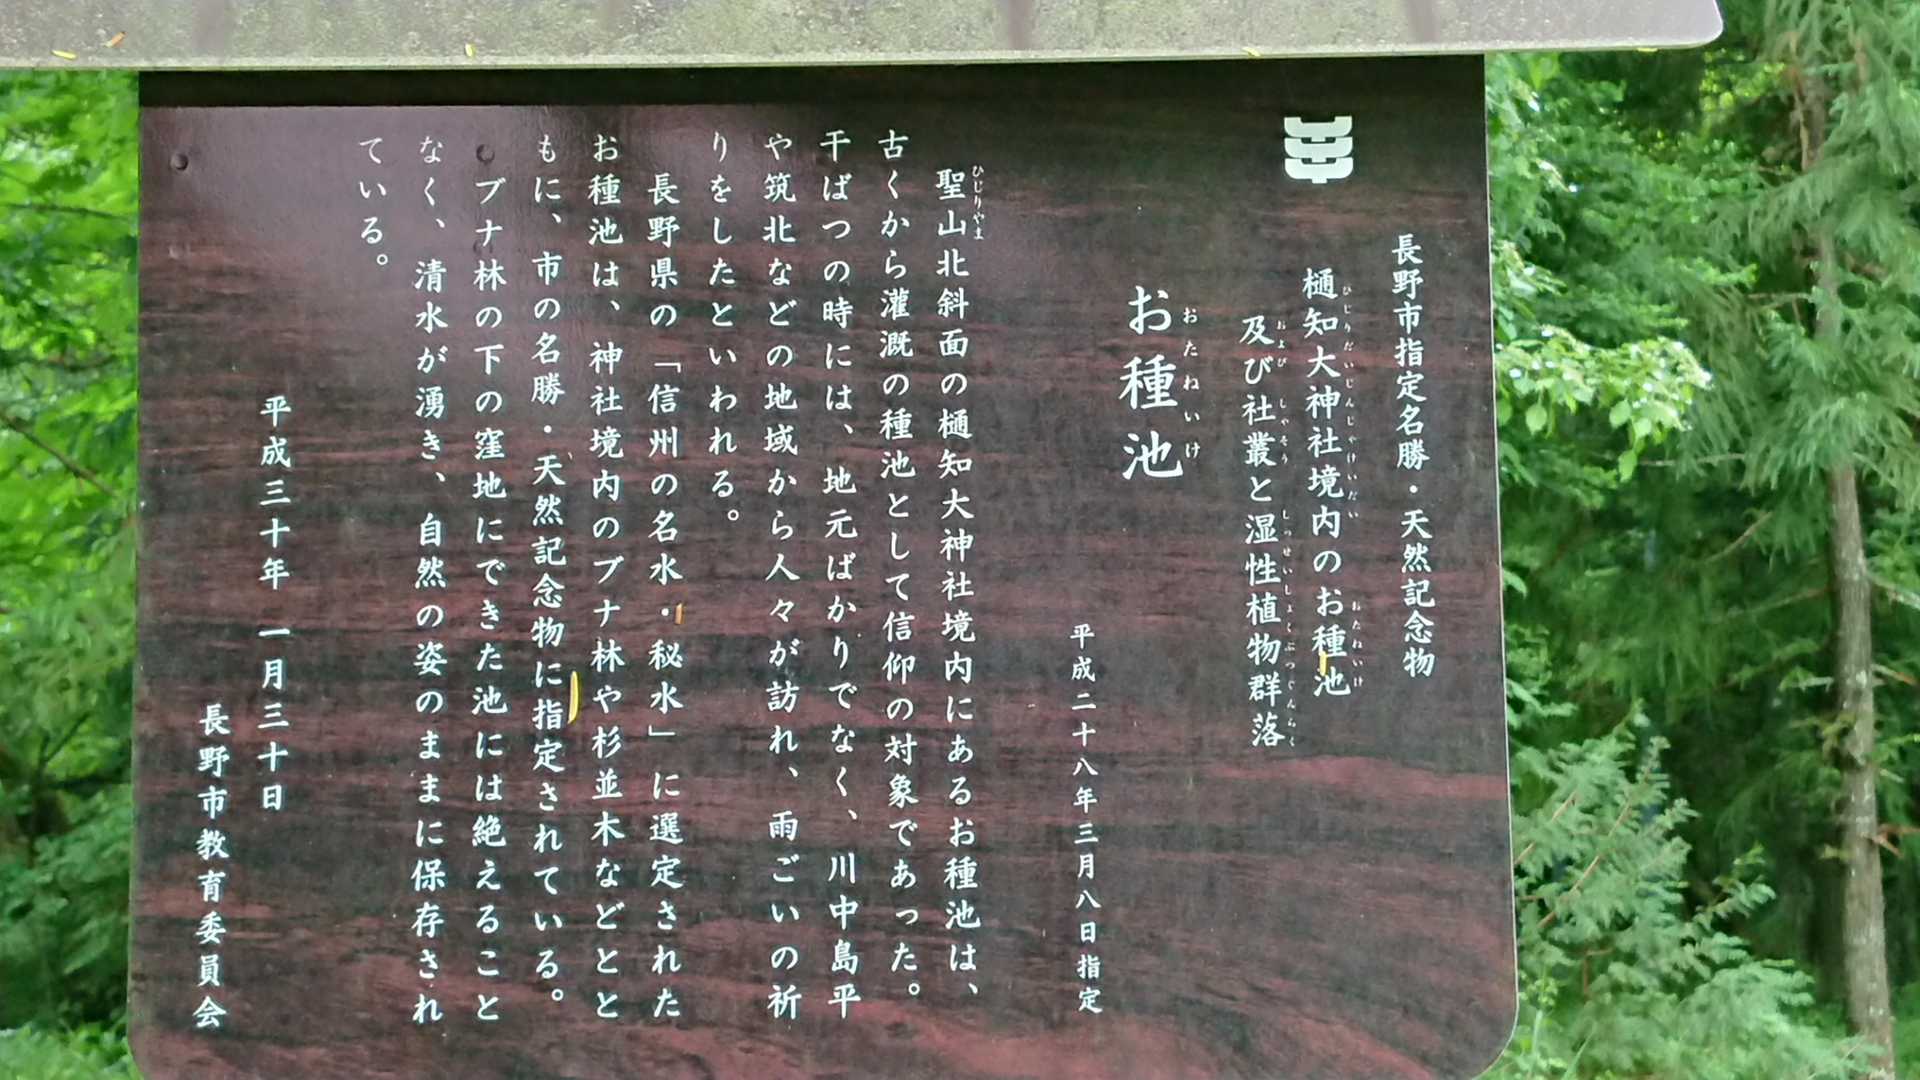 長野市指定名勝・天然記念物
樋知大神社境内のお種池
ひじりだいじんじゃけいだい おたねいけ
及び社叢と湿性植物群落
および しゃそう しっせいしょくぶつぐんらく
お種池
おたねいけ
平成二十八年三月八日指定
聖山北斜面の樋知大神社境内にあるお種池は、
ひじりやま
古くから灌漑の種池として信仰の対象であった。
干ばつの時には、地元ばかりでなく、川中島平
や筑北などの地域から人々が訪れ、雨ごいの祈
りをしたといわれる。
長野県の「信州の名水・秘水」に選定された
お種池は、神社境内のブナ林や杉並木などとと
もに、市の名勝・天然記念物に指定されている。
ブナ林の下の窪地にできた池には絶えること
なく、清水が湧き、自然の姿のままに保存され
ている。
平成三十年 一月三十日
長野市教育委員会